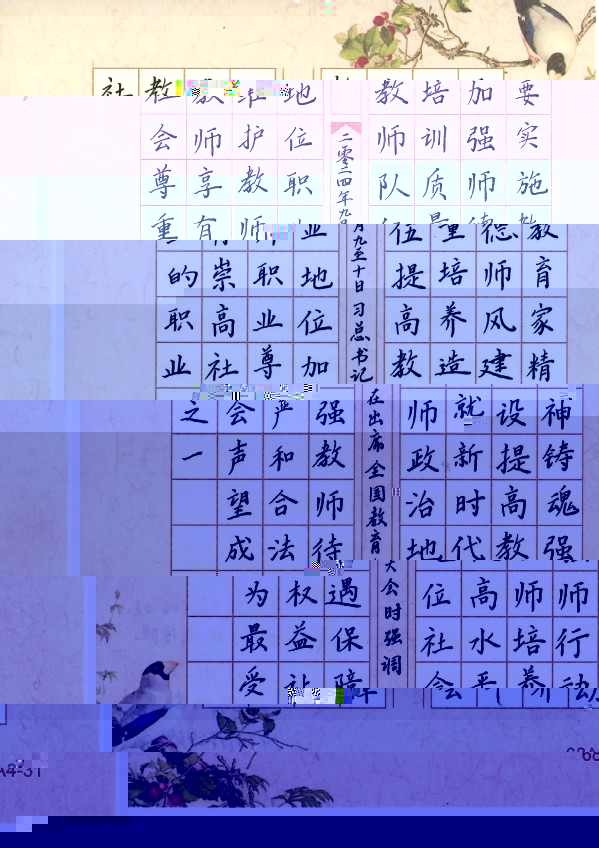 要实施教育家精神铸魂强师行动
加强师德师风建设提高教师培养
培训质量培养造就新时代高水平
教师队伍提高教师政治地位社会
二零二四年九月九至十日习总书记在出席全国教育大会时强调
地位职业地位加强教师待遇保障
维护教师职业尊严和合法权益让
教师享有崇高社会声望成为最受
社会尊重的职业之一